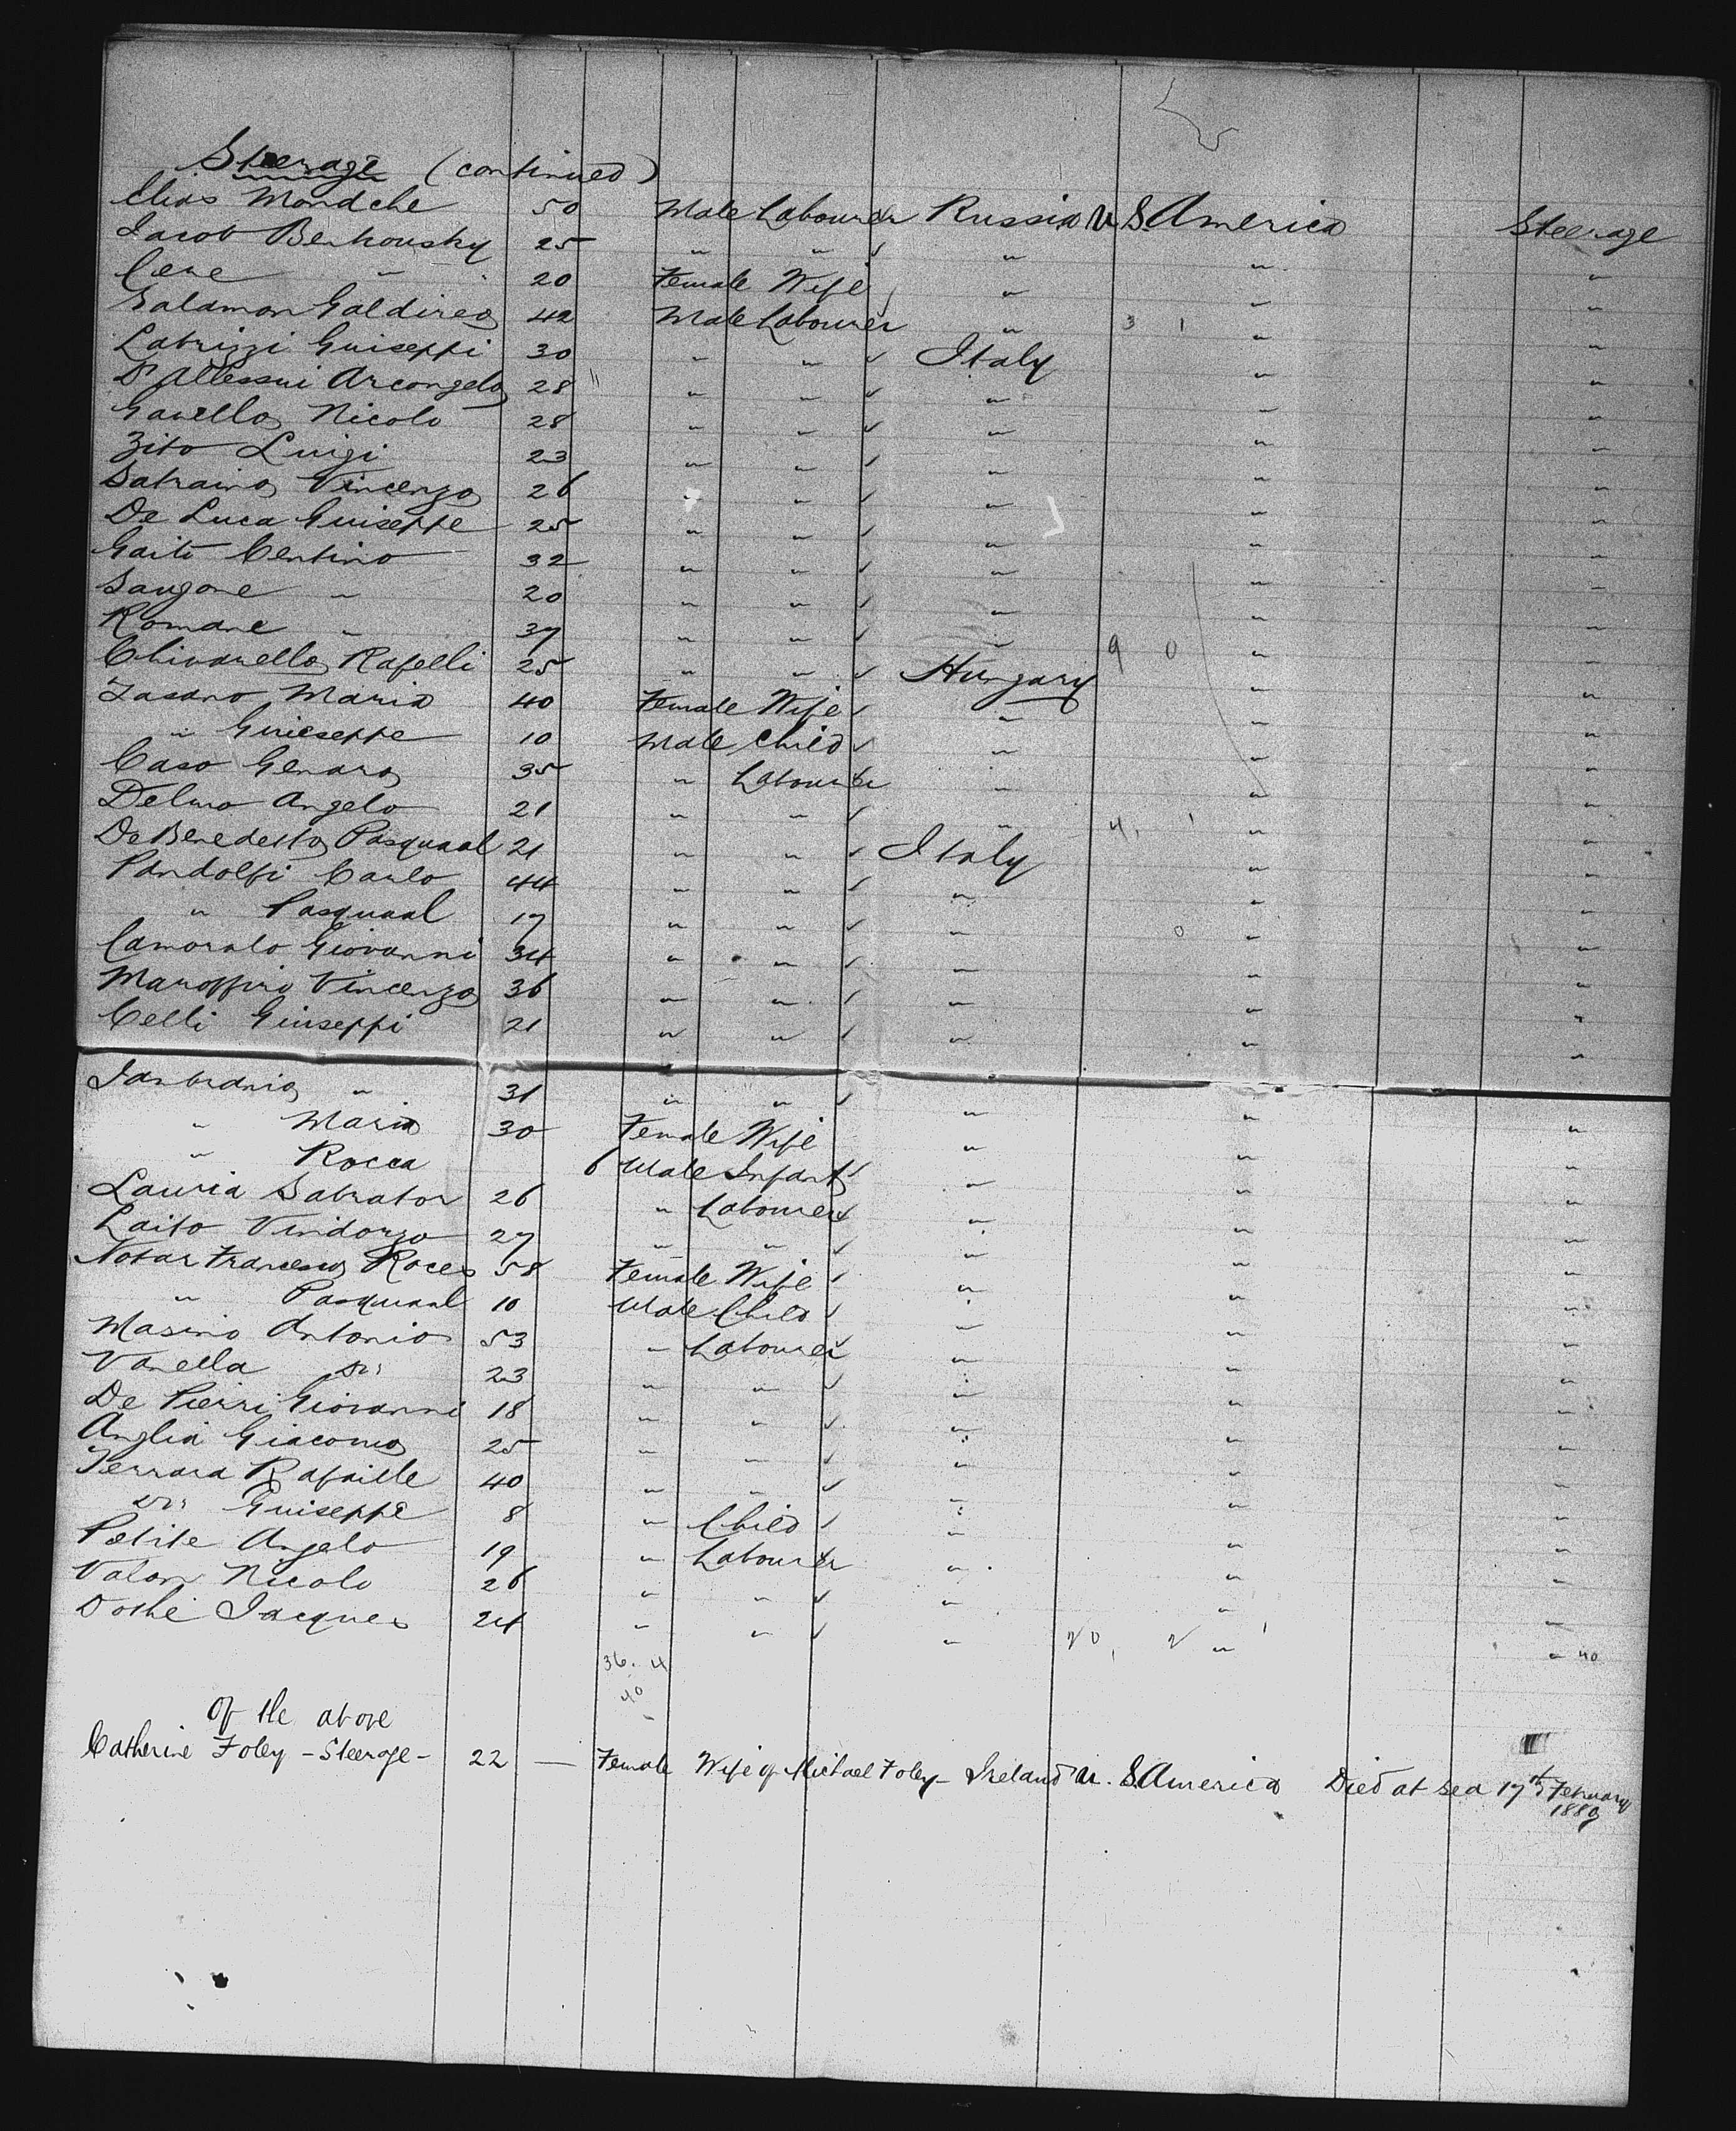 Steerage (continued)
Elias Mondche 50 Male Labourer Russia U.S America Steerage
Jacob Berkousky 25 " " " " "
Cene " 20 Female Wife " " "
Salamon Galdirea 42 Male Labourer " 3 1 " "
Labrizzi Guiseppi 30 " " Italy " "
D'Allessui Arcongelo 28 " " " " "
Gavello Nicolo 28 " " " " "
Zito Luigi 23 " " " " "
Satraino Vincenzo 26 " " " " "
De Luca Guiseppe 25 " " " " "
Gaito Centino 32 " " " " "
Saugone " 20 " " " " "
Romane " 37 " " " 9 0 " "
Chivarello Rafelli 25 " " Hungary " "
Tasano Maria 40 Female Wife " " "
" Guieseppe 10 Male Child " " "
Caso Genaro 35 " Labourer " " "
Delmo Angelo 21 " " " 4 1 " "
De Benedetto Pasquaal 21 " " Italy " "
Pandolfi Carlo 44 " " " " "
" Pasquaal 17 " " " 0 " "
Camoralo Giovanni 34 " " " " "
Maroffino Vincenzo 36 " " " " "
Celli Giuseppi 21 " " " " "
Janbrania " 31 " " " " "
" Maria 30 Female Wife " " "
" Rocca 6 Male Infant " " "
Lauria Sabrator 26 " Labourer " " "
Laito Vindorzo 27 " " " " "
Notar Francesco Rocco 58 Female Wife " " "
" Pasquaal 10 Male Child " " "
Masino Antonio 53 " Labourer " " "
Vanella Do 23 " " " " "
De Pierri Giovanni 18 " " " " "
Anglia Giacomo 25 " " " " "
Ferrara Rafaille 40 " " " " "
Do Guiseppe 8 " Child " " "
Petite Angelo 19 " Labourer " " "
Valon Nicolo 26 " " " " "
Dothe Jacques 24 " " " 20 2 " " 40
36. 4
40
Of the above
Catherine Foley - Steerage - 22 — Female Wife of Michael Foley - Ireland U. S. America Died at sea 17th February
1889